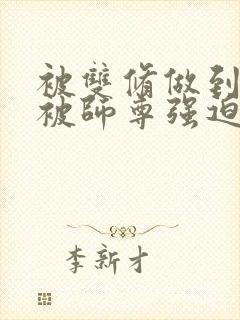 被雙脩做到
被師尊强迫
李新才